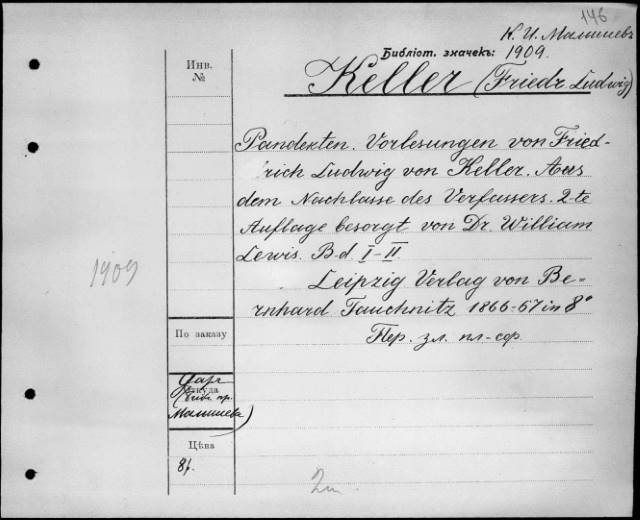 146
К. И. Малышевъ
Библіот. значекъ: 1909.
Keller (Friedr. Ludwig)
Инв.
№
Pandekten. Vorlesungen von Fried-
rich Ludwig von Keller. Aus
dem Nachlasse des Verfassers. 2-te
Auflage besorgt von Dr. William
Lewis. Bd. I-II.
1909
Leipzig Verlag von Be-
rnhard Tauchnitz 1866-67 in 8°
По заказу
Пер. зл. пл-сф.
Даръ
Откуда
Малышева)
Цѣна
8 р.
2 т.